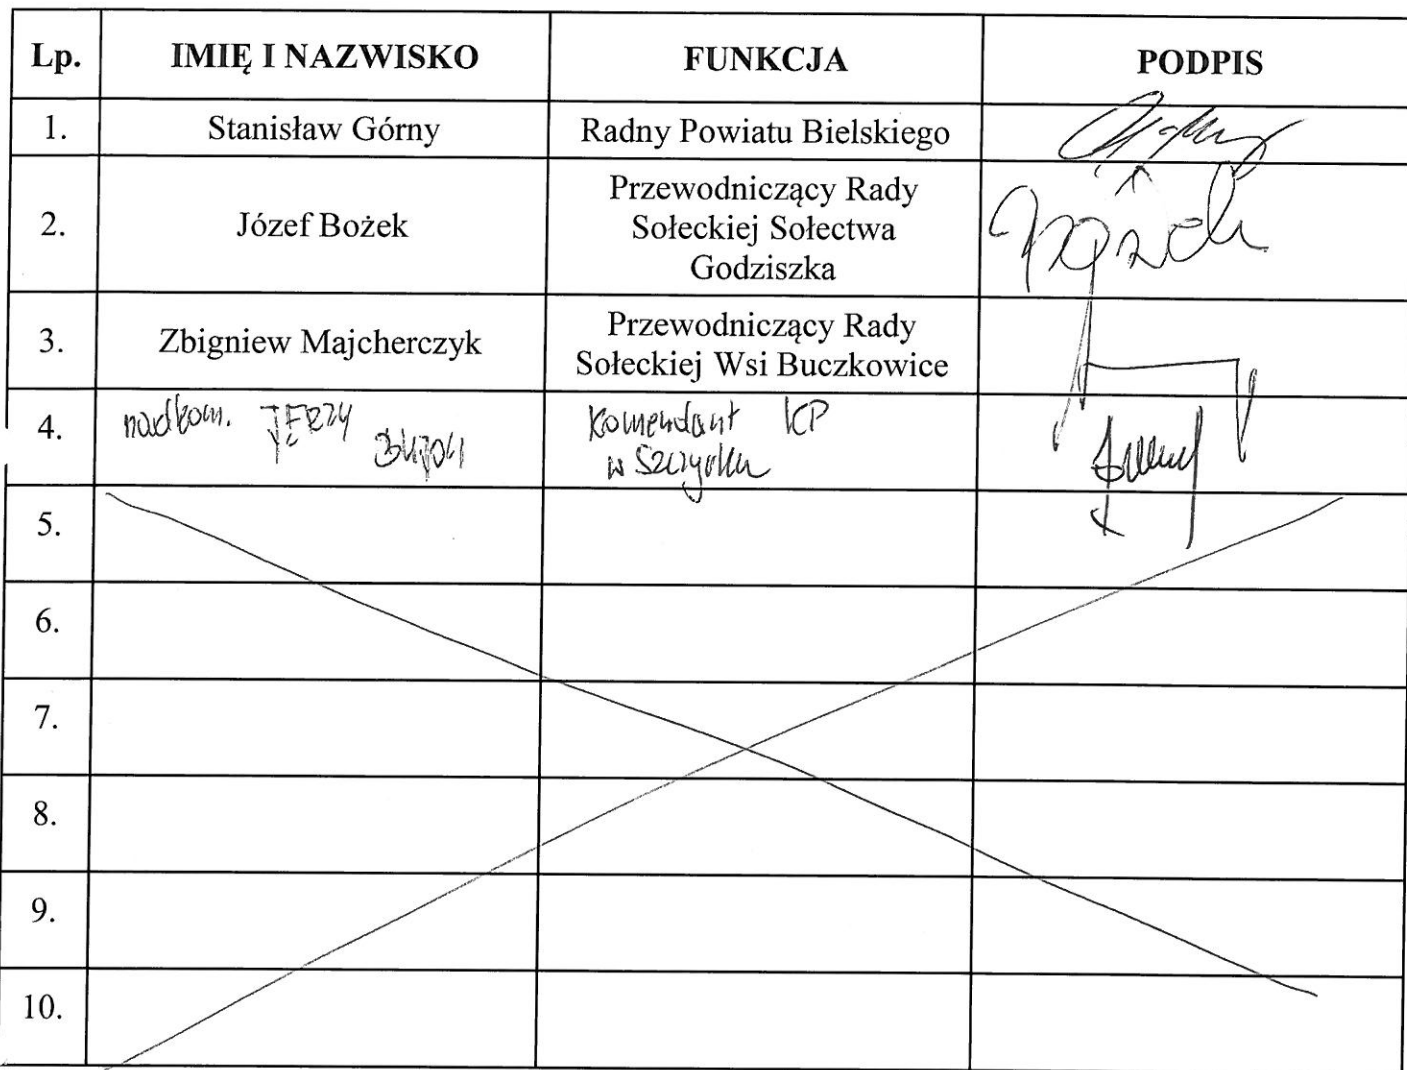 Lp. IMIĘ I NAZWISKO FUNKCJA PODPIS
1. Stanisław Górny Radny Powiatu Bielskiego
2. Józef Bożek Przewodniczący Rady
Sołeckiej Sołectwa
Godziszka
3. Zbigniew Majcherczyk Przewodniczący Rady
Sołeckiej Wsi Buczkowice
4. nadkom. JERZY Komendant KP
w Szczyrku
5.
6.
7.
8.
9.
10.